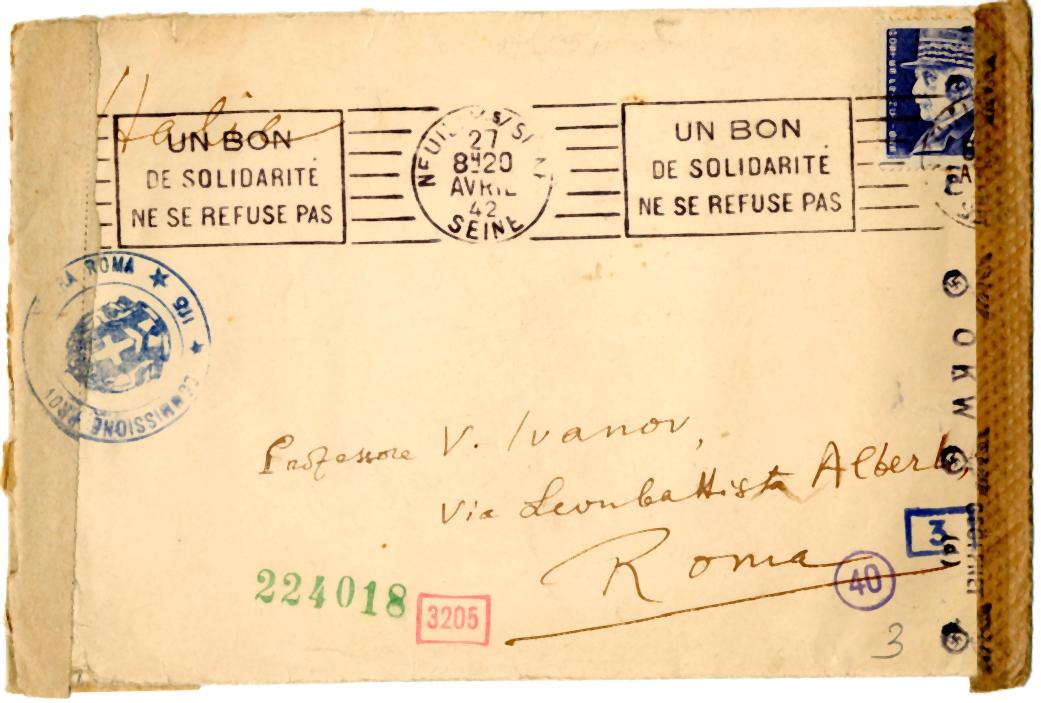 Italie
UN BON
DE SOLIDARITÉ
NE SE REFUSE PAS
NEUILLY S/SEINE
27
8H20
AVRIL
42
SEINE
UN BON
DE SOLIDARITÉ
NE SE REFUSE PAS
ROMA
116
COMMISSIONE PROV
Professore V. Ivanov,
via Leonbattista Alberti,
Roma
O K W
3
(d)
40
224018
3205
3